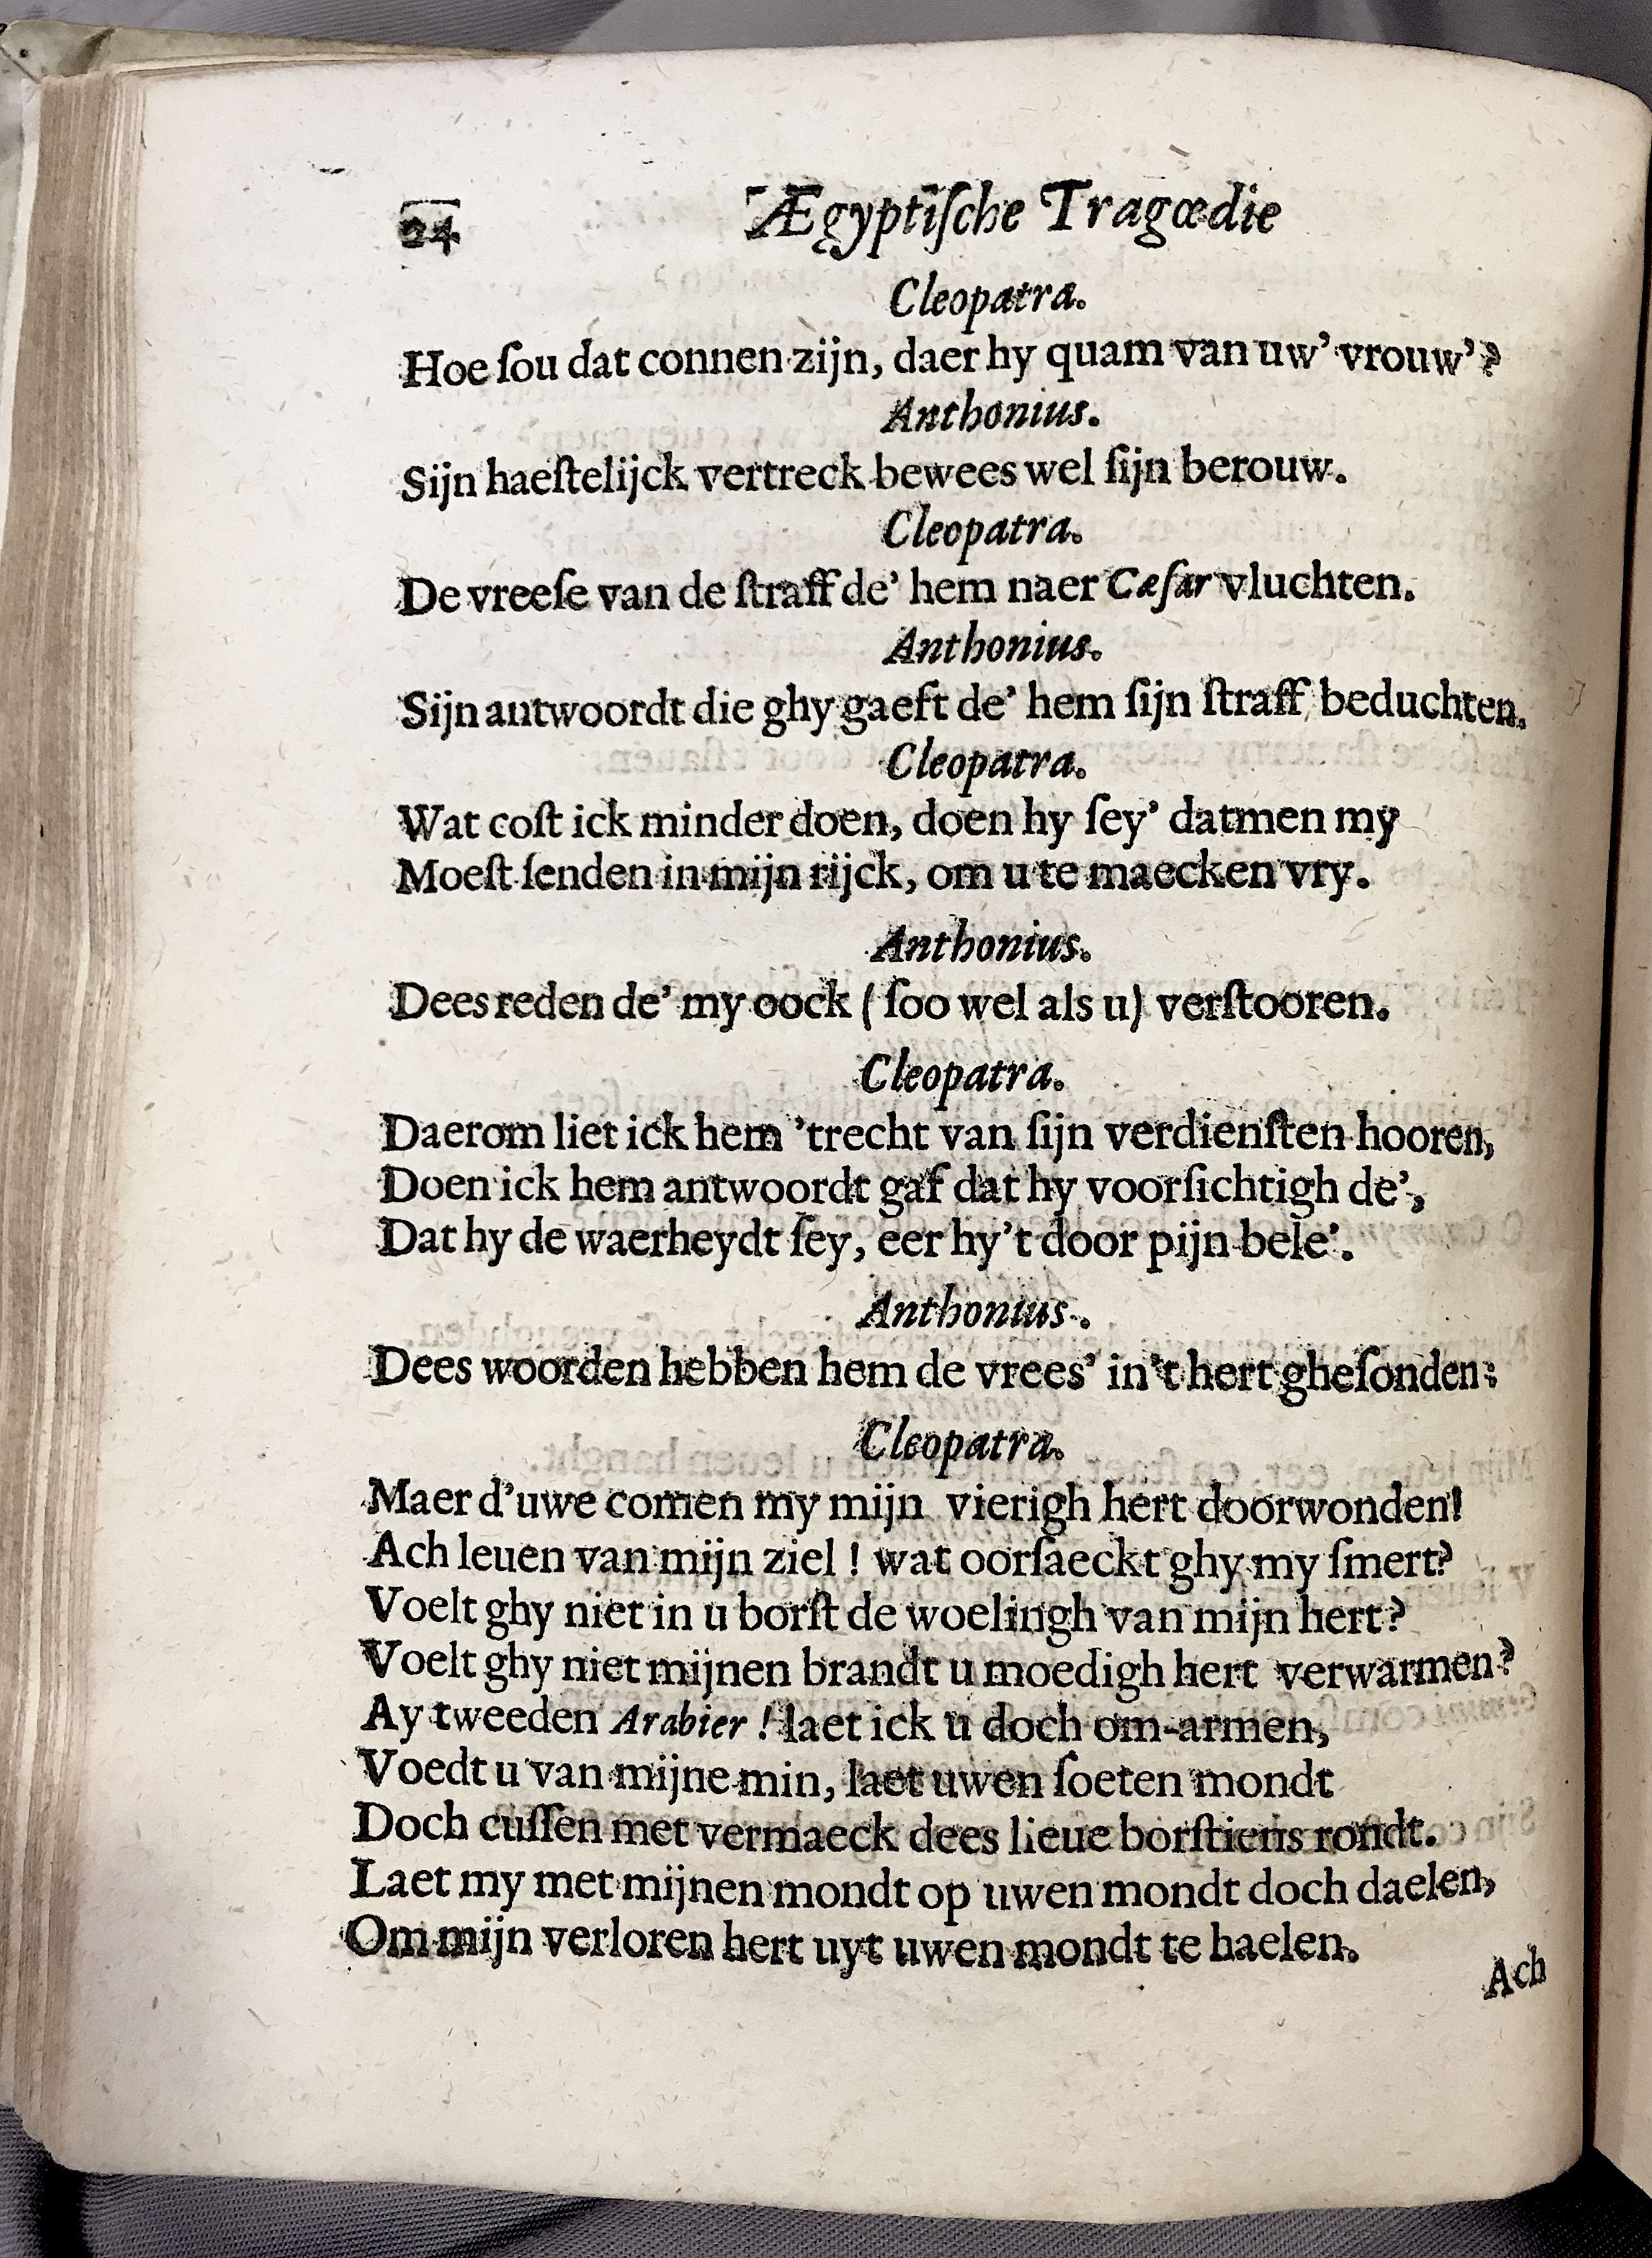 24 Ægyptiſche Tragœdie
Cleopatra.
Hoe ſou dat connen zijn, daer hy quam van uw’ vrouw’?
Anthonius.
Sijn haeſtelijck vertreck bewees wel ſijn berouw.
Cleopatra.
De vreeſe van de ſtraff de’ hem naer Cæſar vluchten.
Anthonius.
Sijn antwoordt die ghy gaeft de’ hem ſijn ſtraff beduchten.
Cleopatra.
Wat coſt ick minder doen, doen hy ſey’ datmen my
Moeſt ſenden in mijn rijck, om u te maecken vry.
Anthonius.
Dees reden de’ my oock (ſoo wel als u) verſtooren.
Cleopatra.
Daerom liet ick hem ’trecht van ſijn verdienſten hooren,
Doen ick hem antwoordt gaf dat hy voorſichtigh de’,
Dat hy de waerheydt ſey, eer hy’t door pijn bele’.
Anthonius.
Dees woorden hebben hem de vrees’ in’t hert gheſonden:
Cleopatra.
Maer d’uwe comen my mijn vierigh hert doorwonden!
Ach leuen van mijn ziel ! wat oorſaeckt ghy my ſmert?
Voelt ghy niet in u borſt de woelingh van mijn hert?
Voelt ghy niet mijnen brandt u moedigh hert verwarmen?
Ay tweeden Arabier ! laet ick u doch om-armen,
Voedt u van mijne min, laet uwen ſoeten mondt
Doch cuſſen met vermaeck dees lieue borſtiens rondt.
Laet my met mijnen mondt op uwen mondt doch daelen,
Om mijn verloren hert uyt uwen mondt te haelen.
Ach